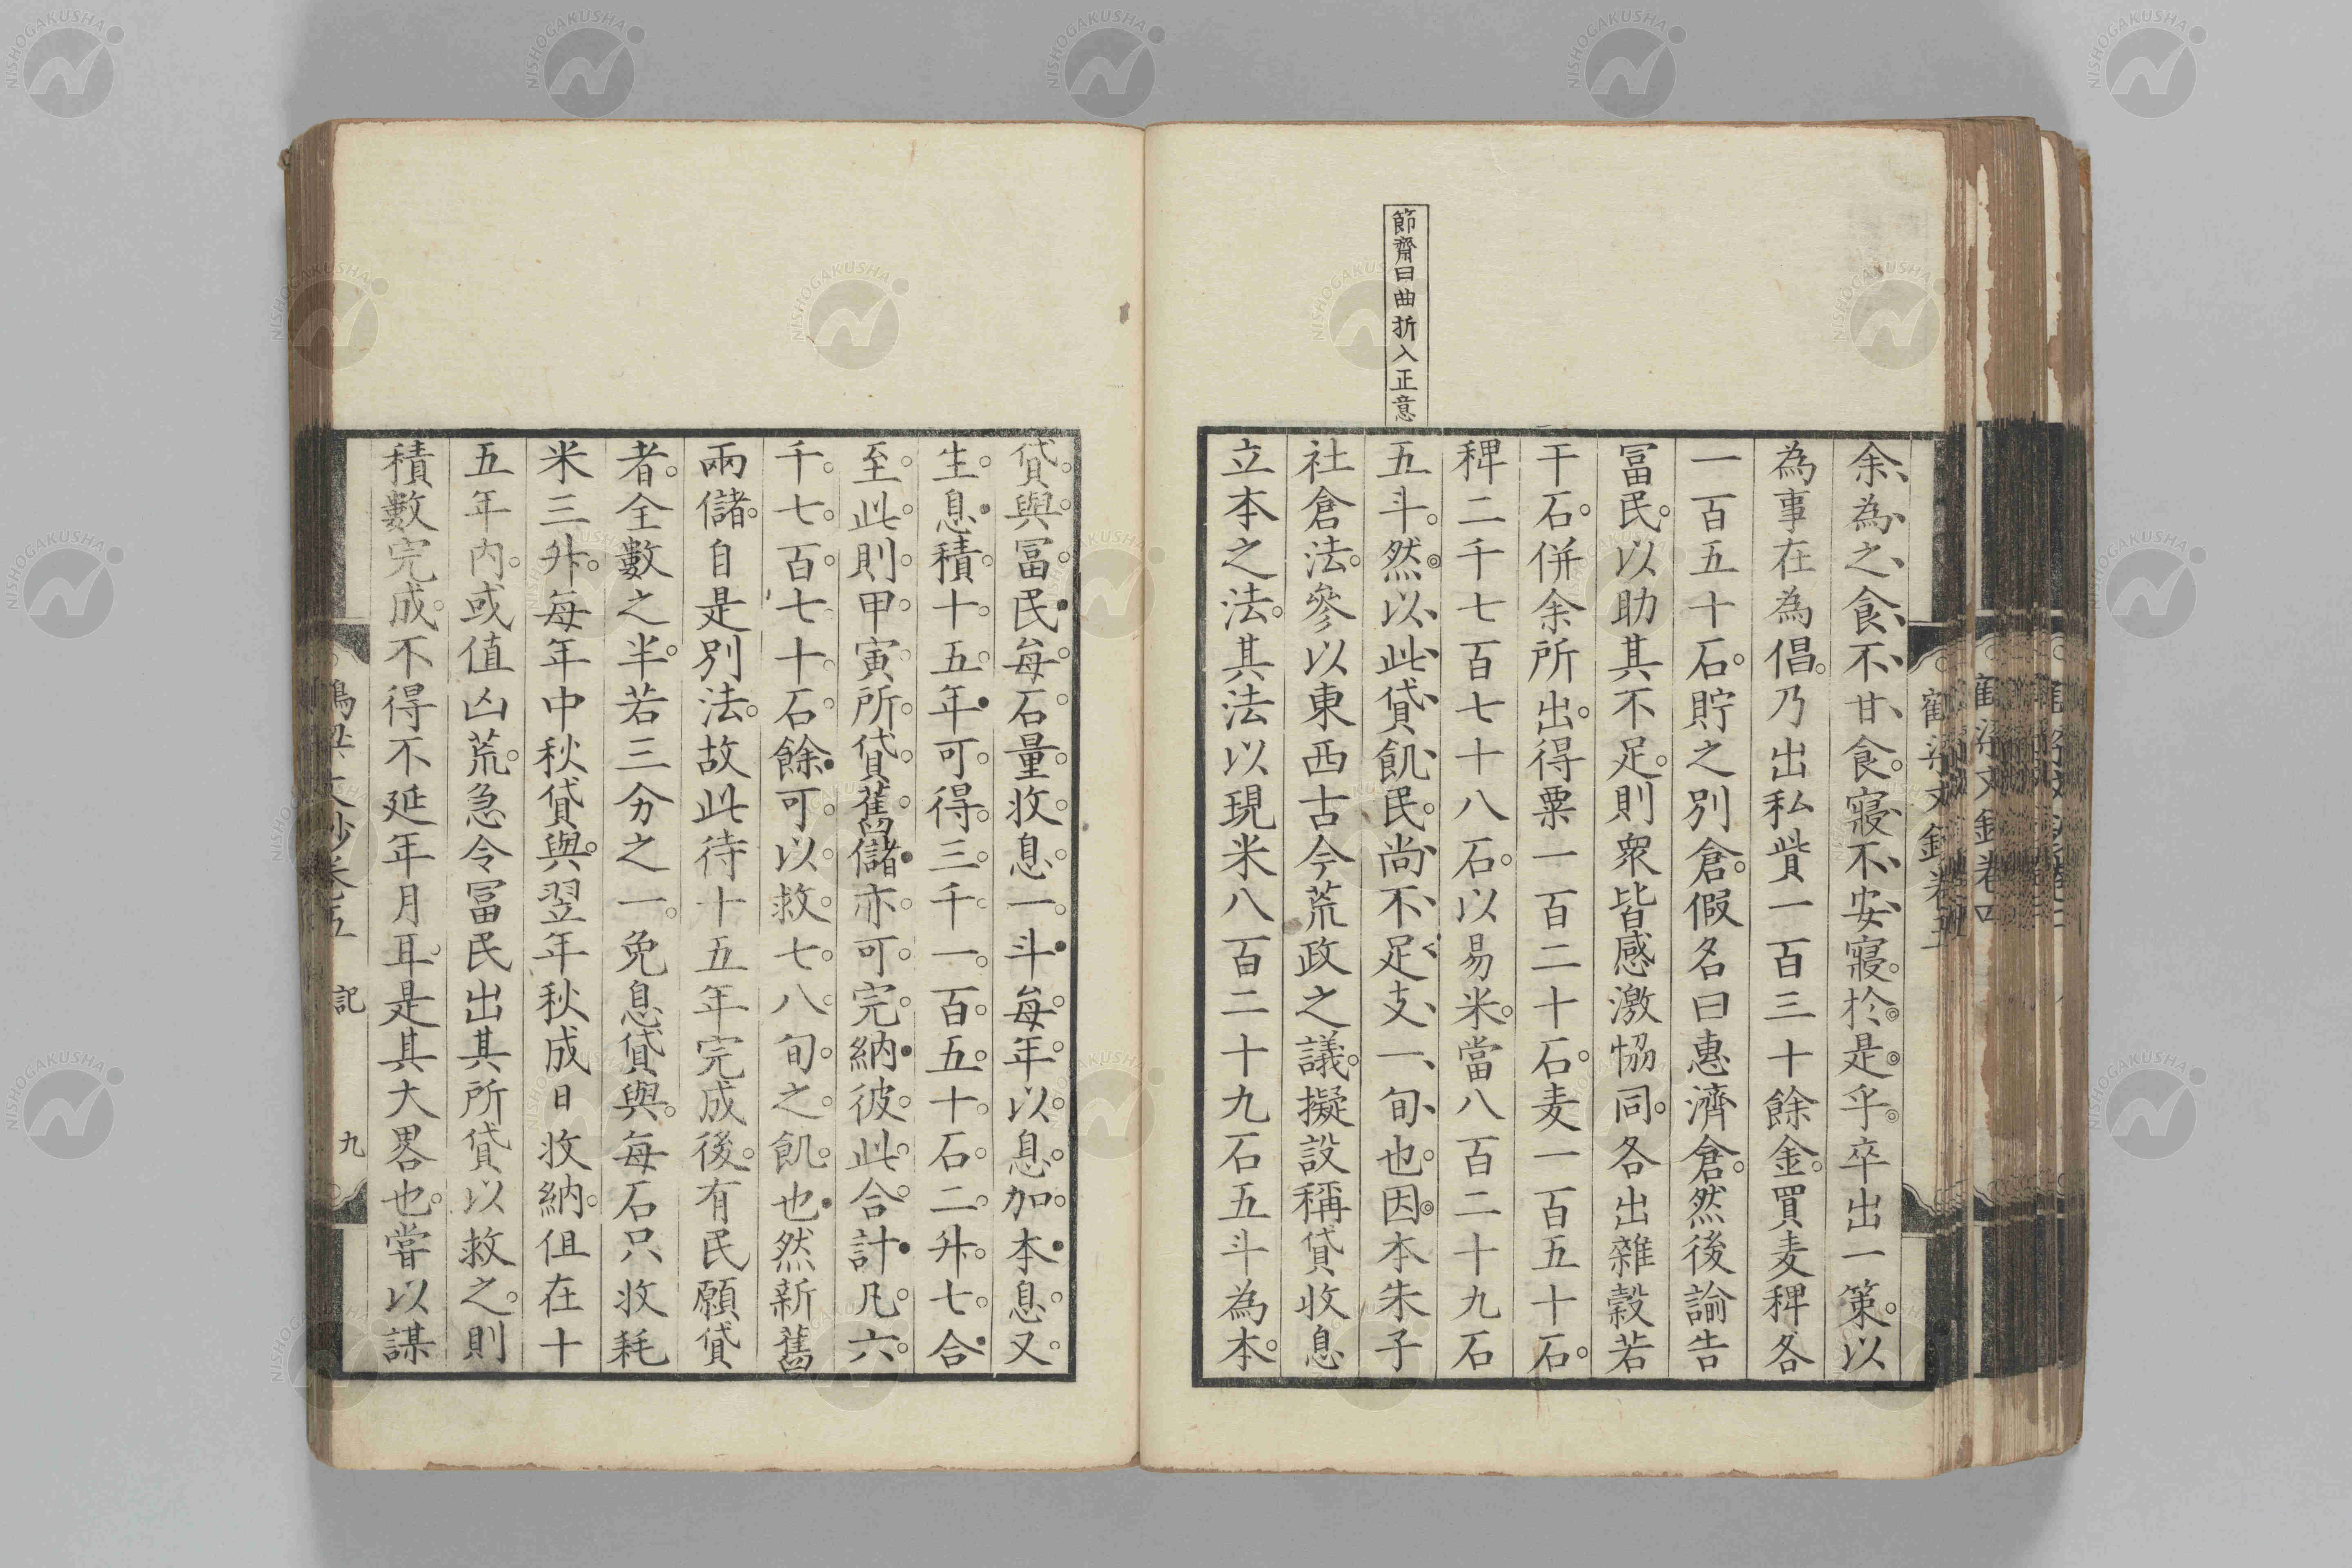 節齋曰曲折入正意
余為之食不甘食寢不安寢於是乎卒出一策以
為事在為倡乃出私貲一百三十餘金買麦稗各
一百五十石貯之別倉假名曰惠濟倉然後諭告
冨民以助其不足則衆皆感激恊同各出雜穀若
干石併余所出得粟一百二十石麦一百五十石
稗二千七百七十八石以易米當八百二十九石
五斗然以此貸飢民尚不足支一旬也因本朱子
社倉法參以東西古今荒政之議擬設稱貸收息
立本之法其法以現米八百二十九石五斗為本
貸與冨民每石量收息一斗每年以息加本息又
生息積十五年可得三千一百五十石二升七合
至此則甲寅所貸舊儲亦可完納彼此合計凡六
千七百七十石餘可以救七八旬之飢也然新舊
兩儲自是別法故此待十五年完成後有民願貸
者全數之半若三分之一免息貸與每石只收耗
米三升每年中秋貸與翌年秋成日收納但在十
五年內或值凶荒急令冨民出其所貸以救之則
積數完成不得不延年月耳是其大畧也嘗以謀
記
九
NISHOGAKUSHA